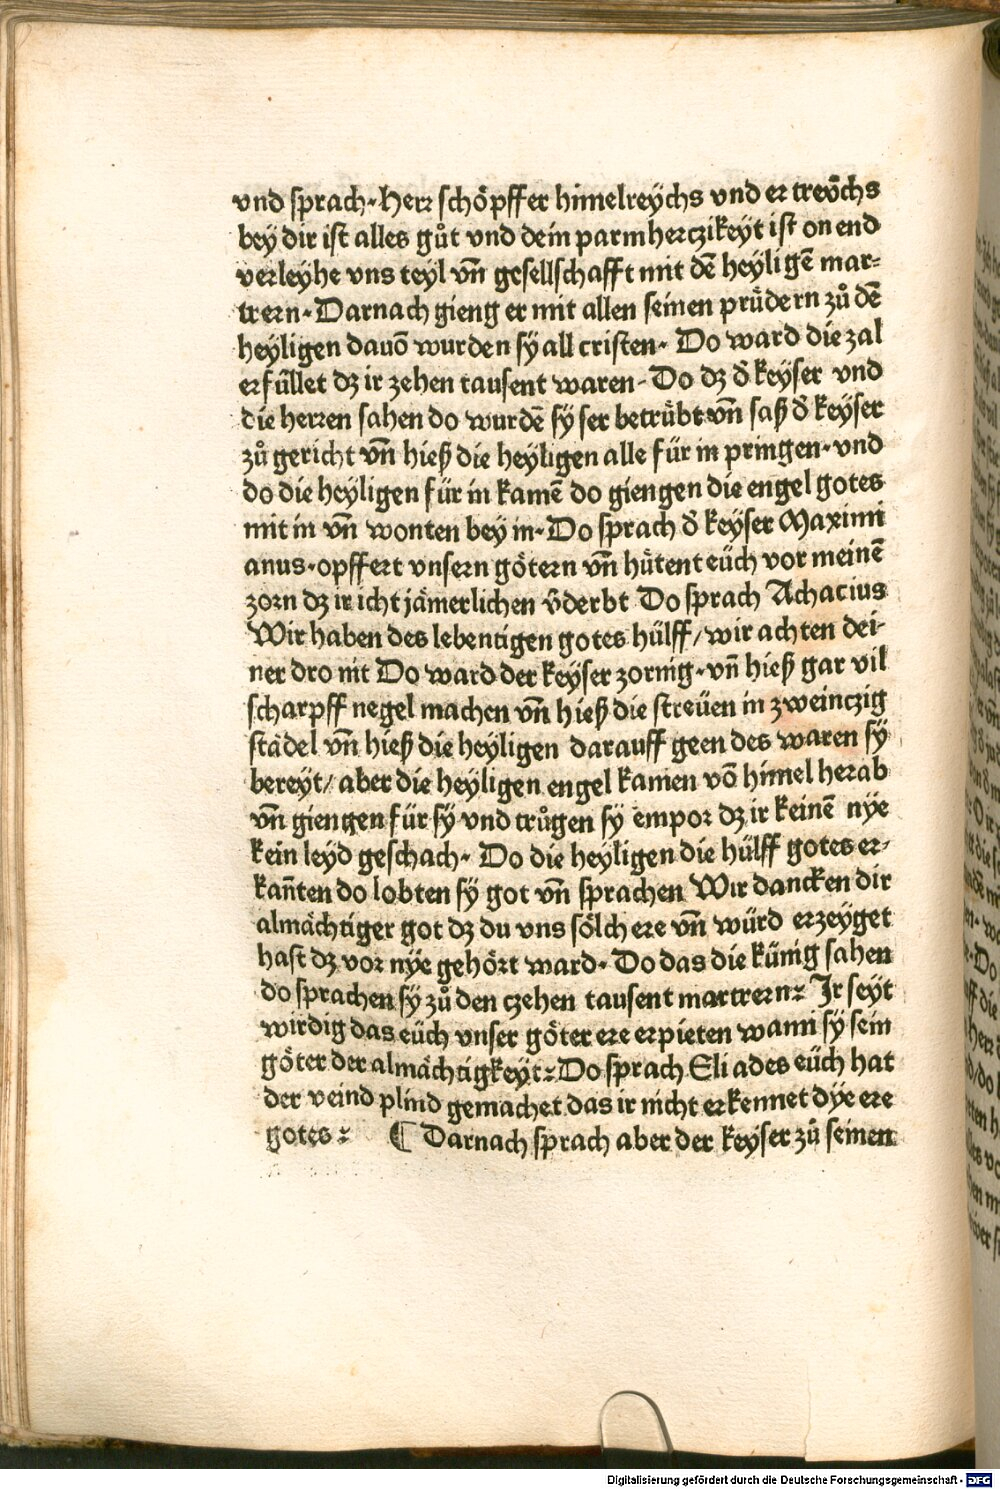 vnd sprach. Herr schöpffer himelreychs vnd ertreychs
bey dir ist alles gůt vnd dein parmherczikeyt ist on end
verleyhe vns teyl vn̄ gesellschafft mit dē heyligē mar-
trern. Darnach gieng er mit allen seinen prüdern zů dē
heyligen dauō wurden sy all cristen. Do ward die zal
erfüllet dz ir zehen tausent waren. Do dz d̄ keyser vnd
die herren sahen do wurdē sy ser betrübt vn̄ saß d̄ keyser
zů gericht vn̄ hieß die heyligen alle für in pringen. vnd
do die heyligen für in kamē do giengen die engel gotes
mit in vn̄ wonten bey in. Do sprach d̄ keyser Maximi
anus. opffert vnsern götern vn̄ hütent eüch vor meinē
zorn dz ir icht jämerlichen v̄derbt Do sprach Achacius
Wir haben des lebentigen gotes hülff/wir achten dei-
ner dro nit Do ward der keyser zornig. vn̄ hieß gar vil
scharpff negel machen vn̄ hieß die streüen in zweinczig
städel vn̄ hieß die heyligen darauff geen des waren sy
bereyt/ aber die heyligen engel kamen vō himel herab
vn̄ giengen für sy vnd trůgen sy empor dz ir keinē nye
kein leyd geschach. Do die heyligen die hülff gotes er-
kan̄ten do lobten sy got vn̄ sprachen Wir dancken dir
almächtiger got dz du vns sölch ere vn̄ würd erzeyget
hast dz vor nye gehört ward. Do das die künig sahen
do sprachen sy zů den czehen tausent martrern: Ir seyt
wirdig das eüch vnser göter ere erpieten wann sy sein
göter der almächtigkeyt: Do sprach Eliades eüch hat
der veind plind gemachet das ir nicht erkennet dye ere
gotes: ¶ Darnach sprach aber der keyser zů seinen
Digitalisierung gefördert durch die Deutsche Forschungsgemeinschaft - DFG